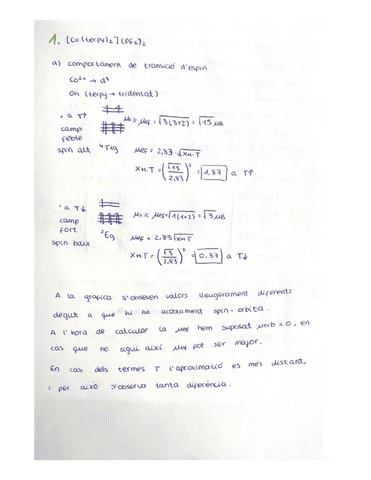 1. [Co(terpy)₂](PF₆)₂
a) comportament de transició d'espin
Co²⁺ → d⁷
Oh (terpy → tridentat)
· a T↑
camp
feble
spin alt ⁴T₁g
μs ≈ μef = √3(3+2) = √15 μB
μef = 2,83 · √XM·T
XM·T = (√15/2,83)² = 1,87 a T↑
· a T↓
camp
fort
spin baix ²Eg
μs ≈ μef = √1(1+2) = √3 μB
μef = 2,83 √XM·T
XM·T = (√3/2,83)² = 0,37 a T↓
A la gràfica s'observen valors lleugerament diferents
degut a que hi ha acoblament spin-orbita.
A l'hora de calcular la μef hem suposat μorb = 0, en
cas que no sigui així μef pot ser major.
En cas dels termes T l'aproximació es més distant,
i per això s'observa tanta diferència.